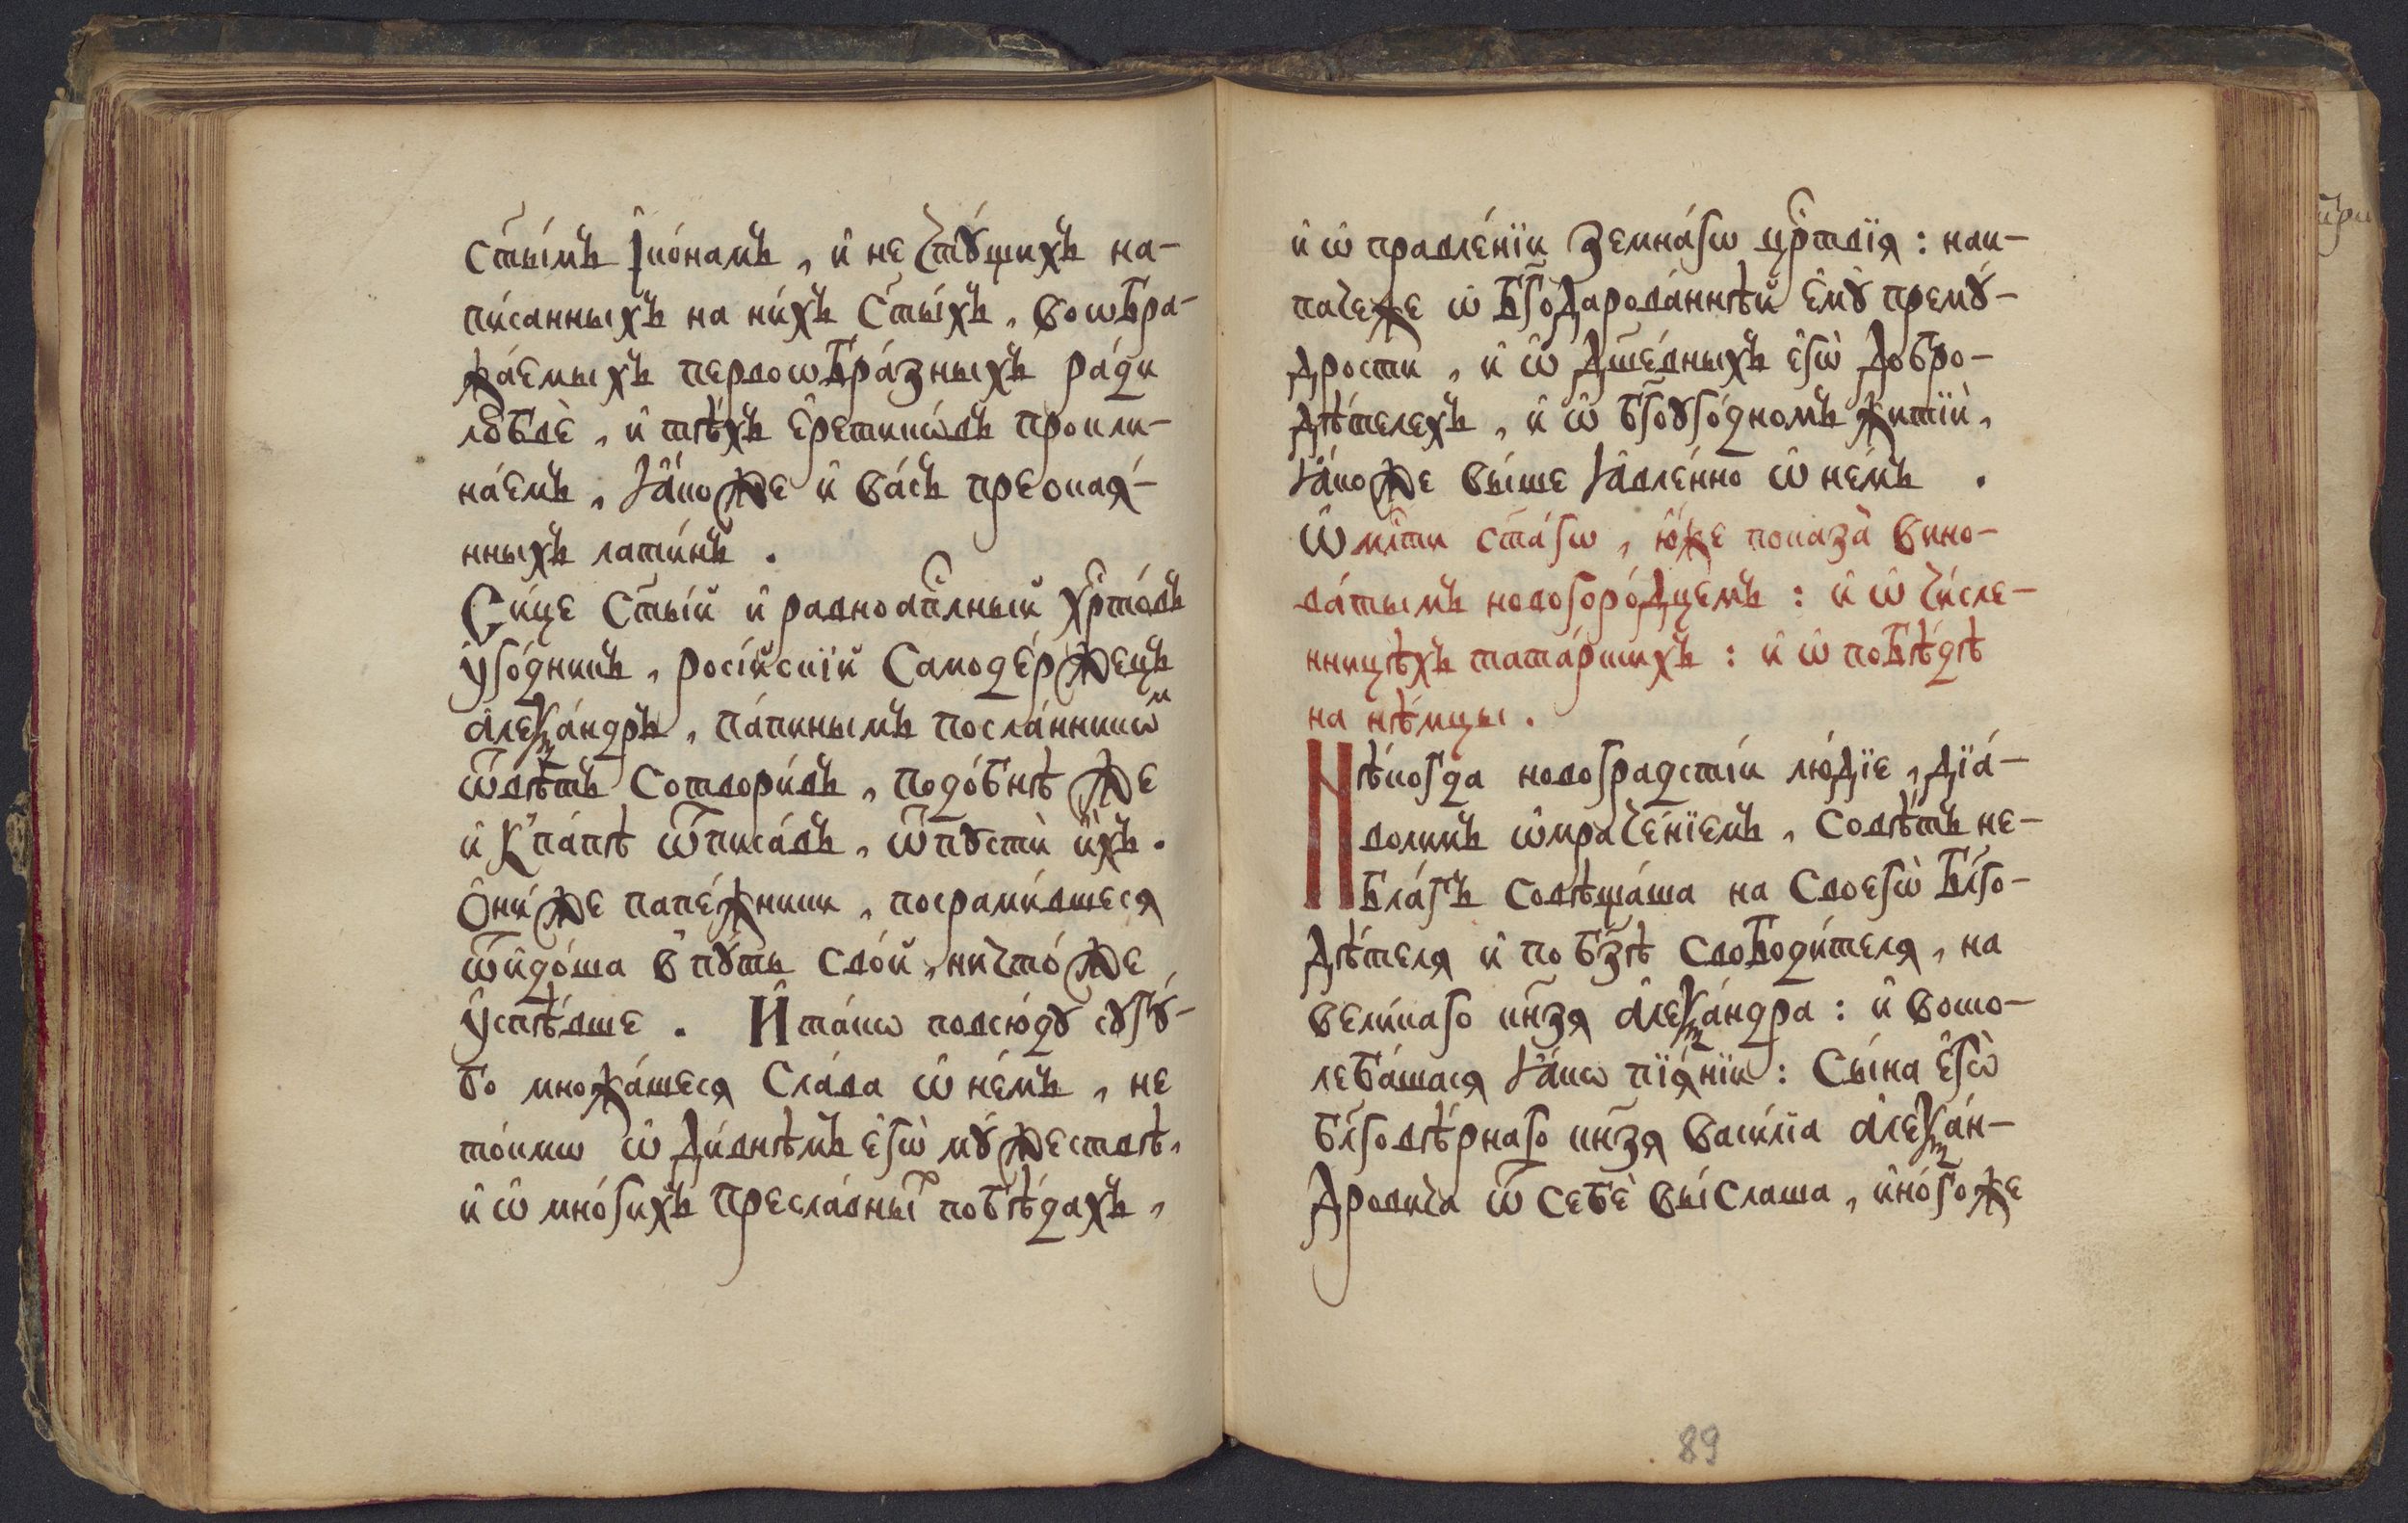 ст҃ы́мъ і҆ко́намъ, и҆ не чтꙋ́щихъ на-
пи́санныхъ на ни́хъ ст҃ы́хъ, воѡбра-
жа́емыхъ первоѡбра́зныхъ ра́ди
любвѐ, и҆ тѣ́хъ є҆ретикѡ́въ прокли-
на́емъ, ꙗ҆́коже и҆ ва́съ преокая́-
нныхъ лати́нъ.
Си́це ст҃ы́й и҆ равноап҃лный хрⷭ҇то́въ
ᲂу҆го́дникъ, росі́йскїй самоде́ржецъ
а҆леѯа́ндръ, па́пинымъ посла́нникѡⷨ
ѿвѣ́тъ сотвори́въ, подо́бнѣ же
и҆ к̾ па́пѣ ѿписа́въ, ѿпꙋстѝ и҆́хъ.
Ѻ҆ни́же папе́жники, посрами́вшеся
ѿидо́ша в̾ пꙋ́ть сво́й, ничто́же
ᲂу҆спѣ́вше. И҆ та́кѡ повсю́дꙋ сꙋгꙋ́-
бо множа́шеся сла́ва ѡ҆ не́мъ, не
то́кмѡ ѡ҆ ди́внѣмъ є҆гѡ̀ мꙋ́жествѣ,
и҆ ѡ҆ мно́гихъ пресла́вныⷯ побѣ́дахъ,
и҆ ѡ҆ правле́нїи земна́гѡ црⷭ҇твїя: наи-
паче же ѡ҆ бг҃одарова́ннѣй є҆мꙋ̀ премꙋ́-
дрости, и҆ ѡ҆ дш҃е́вныхъ є҆гѡ̀ добро-
дѣ́телехъ, и҆ ѡ҆ бг҃оꙋго́дномъ житїѝ,
ꙗ҆́коже вы́ше ꙗ҆вле́нно ѡ҆ не́мъ.
Ѡ҆ млⷭ҇ти ст҃а́гѡ, ю҆́же показа̀ вино-
ва́тымъ новогоро́дцемъ: и҆ ѡ҆ чи́сле-
нницѣхъ тата́рскихъ: и҆ ѡ҆ побѣ́дѣ
на нѣ́мцы.
Нѣ́когда новоградсті́и лю́дїе, дїа́-
волимъ ѡ҆мраче́нїемъ, совѣ́тъ не-
бла́гъ совѣща́ша на своегѡ̀ бл҃го-
дѣ́теля и҆ по бз҃ѣ свободи́теля, на
вели́каго кн҃зя а҆леѯа́ндра: и҆ воско-
леба́шася ꙗ҆́кѡ пїя́нїи: сы́на є҆гѡ̀
бл҃говѣ́рнаго кн҃зя васи́лїа а҆леѯа́н-
дровича ѿ себѐ вы́слаша, и҆но́гоже
89